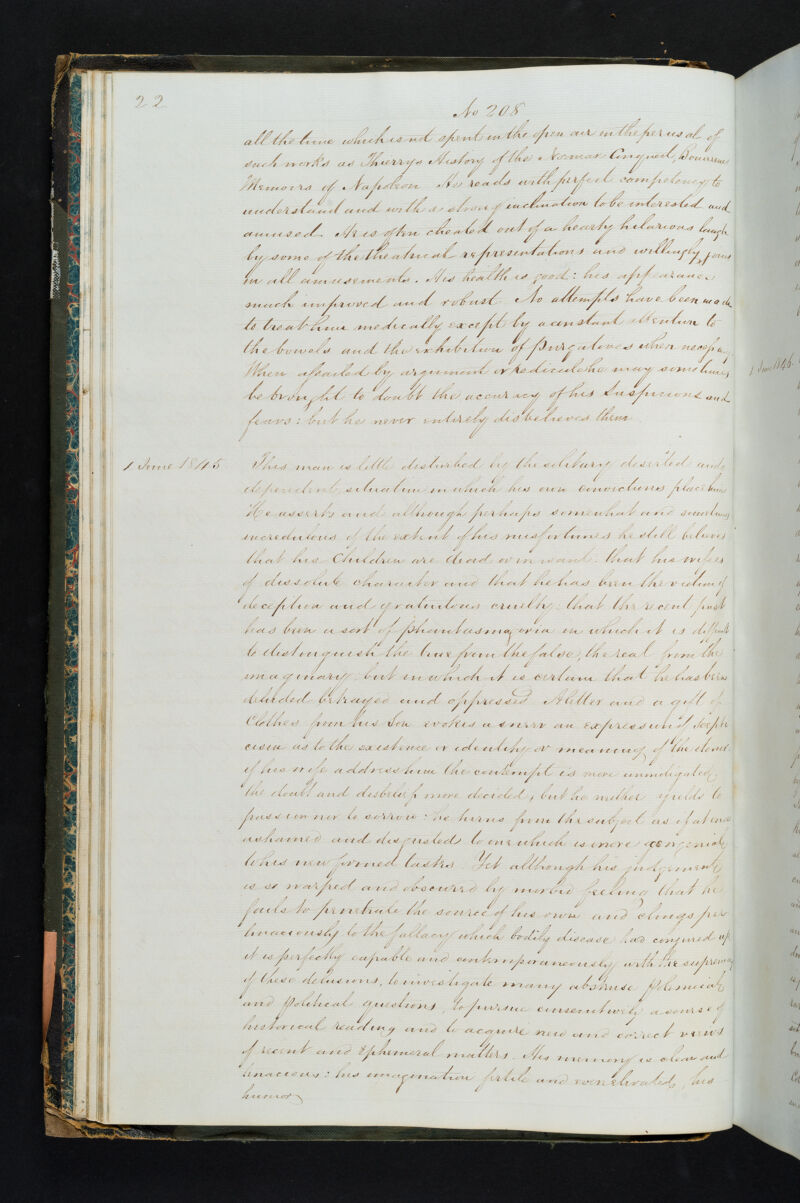 22
No 208
all the time which is not spent in the open air in the perusal of
such works as Thierrys History of the Norman Conquest, Bourriennes
Memoirs of Napoleon. He reads with perfect competency to
understand and with a strong inclination to be interested and
amused. He is often cheated out of a hearty hilarious laugh
by some of the theatrical representations and willingly joins
in all amusements. His health is good: his appearance
much improved and robust. No attempts have been made
to treat him medically except by a constant attention to
the bowels and the exhibition of purgatives when necessary.
When assailed by argument or redicule he may sometimes
be brought to doubt the accuracy of his suspicions and
fears: but he never entirely disbelieves them.
1 June 1845.
This man is little disturbed by the solitary deserted and
dependent situation in which his own convictions place him
He asserts and although perhaps somewhat and sometimes
incredulous of the extent of his misfortunes he still believes
that his Children are dead or in want: that his wife is
of dissolute character and that he has been the victim of
deception and gratuitous cruelty: that the recent past
has been a sort of phantasmagoria in which it is difficult
to distinguish the true from the false, the real from the
imaginary: but in which it is certain that he has been
deluded betrayed and oppressed. A letter and a gift of
Clothes from his Son evokes a sneer an expression of scepti
cism as to the existence or identity or meaning of the donor.
if his wife address him the contempt is more unmitigated,
the doubt and disbelief more decided, but he neither yields to
passion nor to sorrow: he turns from the subject as if at once
ashamed and disgusted to one which is more congenial
to his new formed tastes. Yet although his judgement
is so warped and obscured by morbid feeling that he
fails to penetrate the source of his own and clings per
tinaciously to the fallacy which bodily disease has conjured up
it is perfectly capable and contemporaneously with the supremacy
of these delusions, to investigate many abstruse Polemical
and Political questions, to pursue consecutively a course of
historical reading and to acquire new and correct views
of recent and Ephemeral matters. His memory is clear and
tenacious: his imagination fertile and his
humor
1 June 1846.